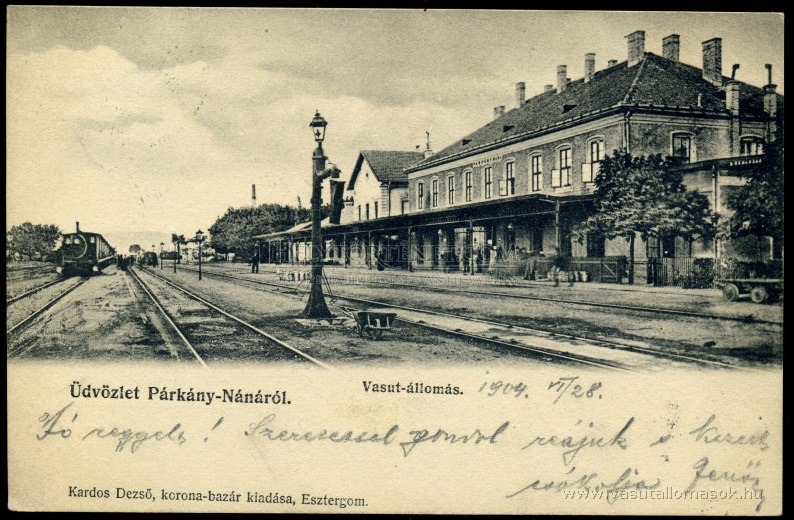 Üdvözlet Párkány-Nánáról.
Vasut-állomás. 1904. VI/28.
Jó reggelt! Szeretettel gondol reájuk s kezeit
csókolja Jenő
Kardos Dezső, korona-bazár kiadása, Esztergom.
www.vasutallomasok.hu